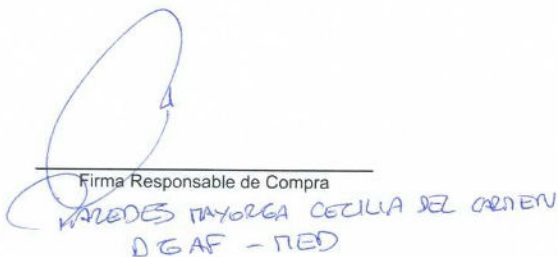 Firma Responsable de Compra
PAREDES MAYORGA CECILIA DEL CARMEN
DGAF - MED